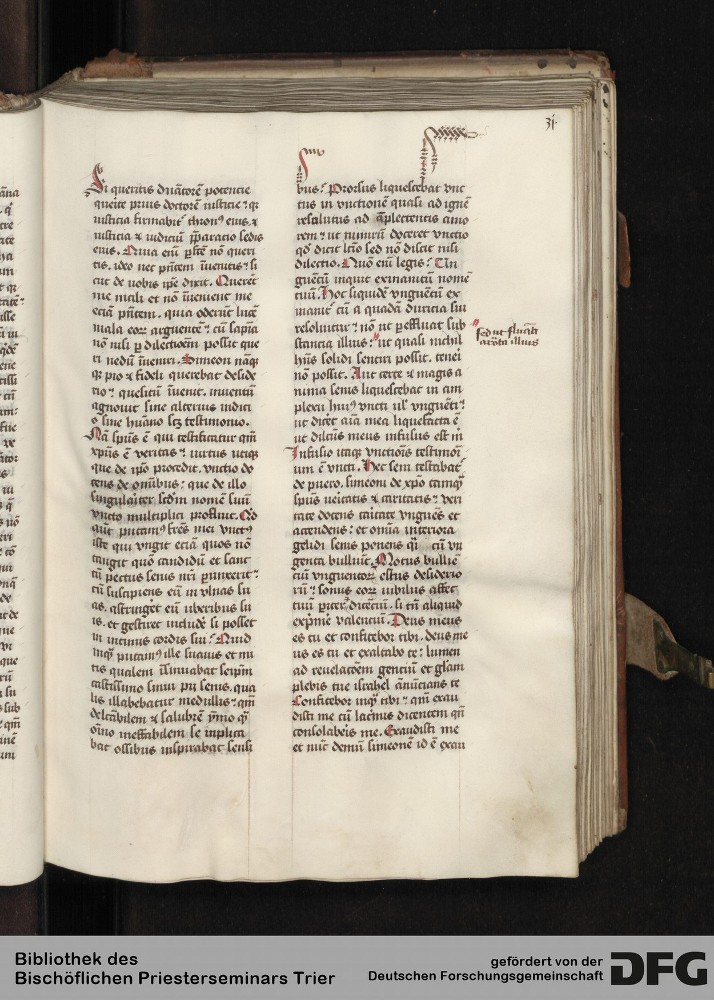 31.
Si queritis ductorē potencie
querite prius doctorē iusticie
iusticia firmabit᷑ thronꝰ eius. ⁊
iusticia ⁊ iudiciū p̄paratio sedis
eius. Quia em̄
tis. ideo nec
cut de uobis ip̄e dixit. Queret᷑
me mali et nō īuenient me
eciā pn̄tem. quia oderūt lucē
mala eoꝝ arguentē ⁊ cū sapīa
nō nisi ꝑ dilectioēm possit que
ri nedū īueniri. Simeon
pio ⁊ fideli querebat deside
rio ⁊ quesitū īuenit. inuentū
agnouit sine alterius indici
o sine hūano testimonio.
Nā spūs ē qui testificatur qm̄
xpūs ē veritas ⁊ uirtus utiq
que de ip̄o procedit. vnctio do
cens de om̄ibus
singulariter nomē suū
vncto multiplici profluit.
putamꝰ frēs mei vnctꝰ
iste qui vngit eciā quos nō
tangit quō candidū et sanc
tū pectus senis nr̄i ꝑunxerit ⁊
cū suscipiens eū in vlnas su
as. astringeret eū uberibus su
is. et gestiret includē si posset
in intimis cordis sui. Quid
inq̄ putamꝰ ille suauis et mi
tis qualem īsinuabat seip̄m
castissimo sinui pii senis. qua
lis illabebatur medullis ⁊ qm̄
delectabilem ⁊ salubrē ymo
oīno ineffabilem se inplica
bat ossibus inspirabat sensi
bus. Prorsus liquescebat vnc
tus in vnctionē quasi ad ignē
resolutus ad āplectentis amo
rem ⁊ ut nimirū doceret vnctio
qd̄ dicit lc̄io sed nō discit nisi
dilectio. Quō eni legis. Un
guētū inquit exinanitū nomē
tuū. Hoc liquidē vnguētū ex
inanit᷑ cū a quadā duricia sui
resoluitur ⁊ nō ut ꝑeffluat sub
stancia illius ut quasi nichil
hn̄s solidi sentiri possit. teneri
nō possit. Aut certe ⁊ magis a
nima senis liquescebat in am
plexu huiꝰ vncti ul' vnguēti ⁊
ut dicēt aīa mea liquefacta ē
ut dilctūs meus infusus est m̄
Infusio itaq vnctiōis testimōi
um ē vncti. Hec seni testabat᷑
de puero. simeoni de xp̄o tamq̄
spūs veritatis ⁊ caritatis ⁊ veri
tate docens caritate vnguēs et
accendens ⁊ et om̄ia interiora
gelidi senis ponens q̄si cū vn
genta bulliūt. Motus bulliē
ciū vnguentoꝝ estus desiderio
rū ⁊ sonus eoꝝ iubilus affec
tuū si tn̄ aliquid
exp̄mē valenciū. Deus meus
es tu et confitebor tibi. deus me
us es tu et exaltabo te ⁊ lumen
ad reuelatōem gentiū et glām
plebis tue israhel ānūcians te
Confitebor inq̄ tibi ⁊ qm̄ exau
disti me cū lacr̄mis dicentem qn̄
consolabeis me. Exaudisti me
et nūc demū simeonē id ē exau
sed ut fluēt
aromata illius
Bibliothek des
Bischöflichen Priesterseminars Trier
gefördert von der
Deutschen Forschungsgemeinschaft
DFG